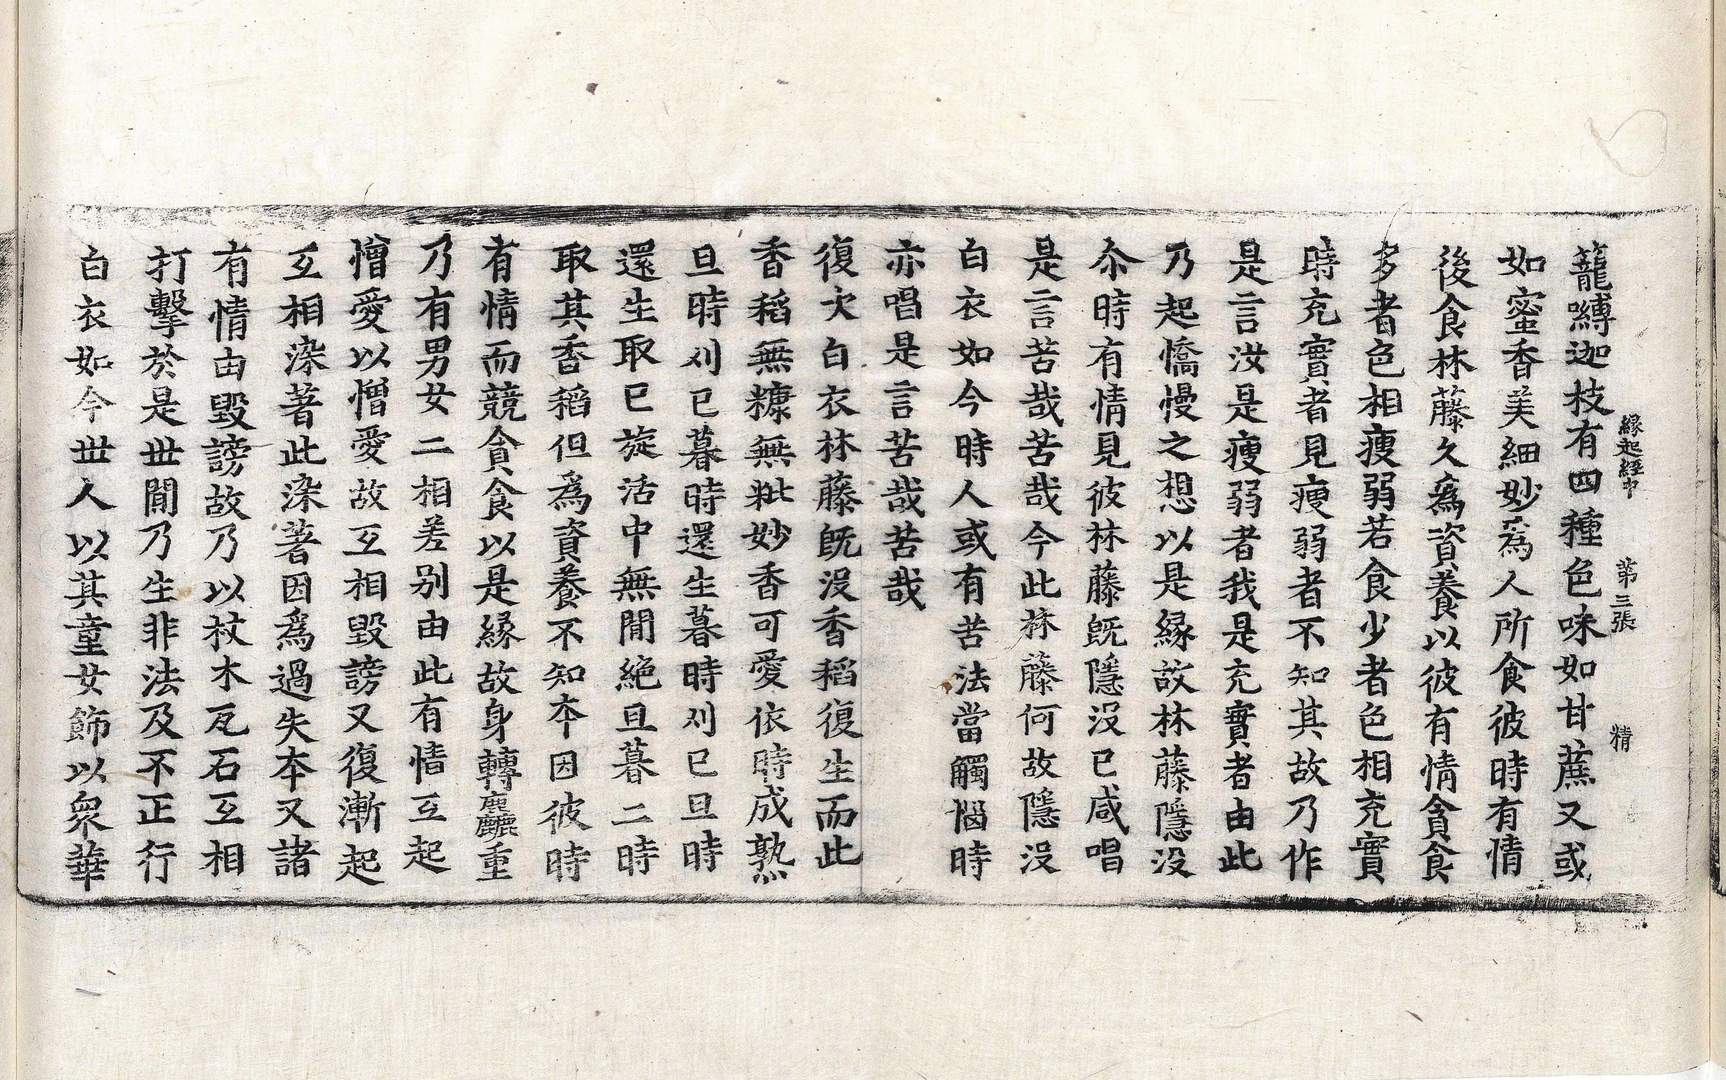 緣起經中　第三張　精
籠嚩迦枝有四種色味如甘蔗又或
如蜜香美細妙爲人所食彼時有情
後食林藤久爲資養以彼有情貪食
多者色相瘦弱若食少者色相充實
時充實者見瘦弱者不知其故乃作
是言汝是瘦弱者我是充實者由此
乃起憍慢之想以是緣故林藤隱沒
尒時有情見彼林藤旣隱沒已咸唱
是言苦哉苦哉今此林藤何故隱沒
白衣如今時人或有苦法當觸惱時
亦唱是言苦哉苦哉
復次白衣林藤旣沒香稻復生而此
香稻無糠無粃妙香可愛依時成熟
旦時刈已暮時還生暮時刈已旦時
還生取已旋活中無間絕旦暮二時
取其香稻但爲資養不知夲因彼時
有情而競貪食以是緣故身轉麤重
乃有男女二相差別由此有情互起
憎愛以憎愛故互相毀謗又復漸起
互相染著此染著因爲過失夲又諸
有情由毀謗故乃以杖木瓦石互相
打擊於是世間乃生非法及不正行
白衣如今世人以其童女飾以衆華